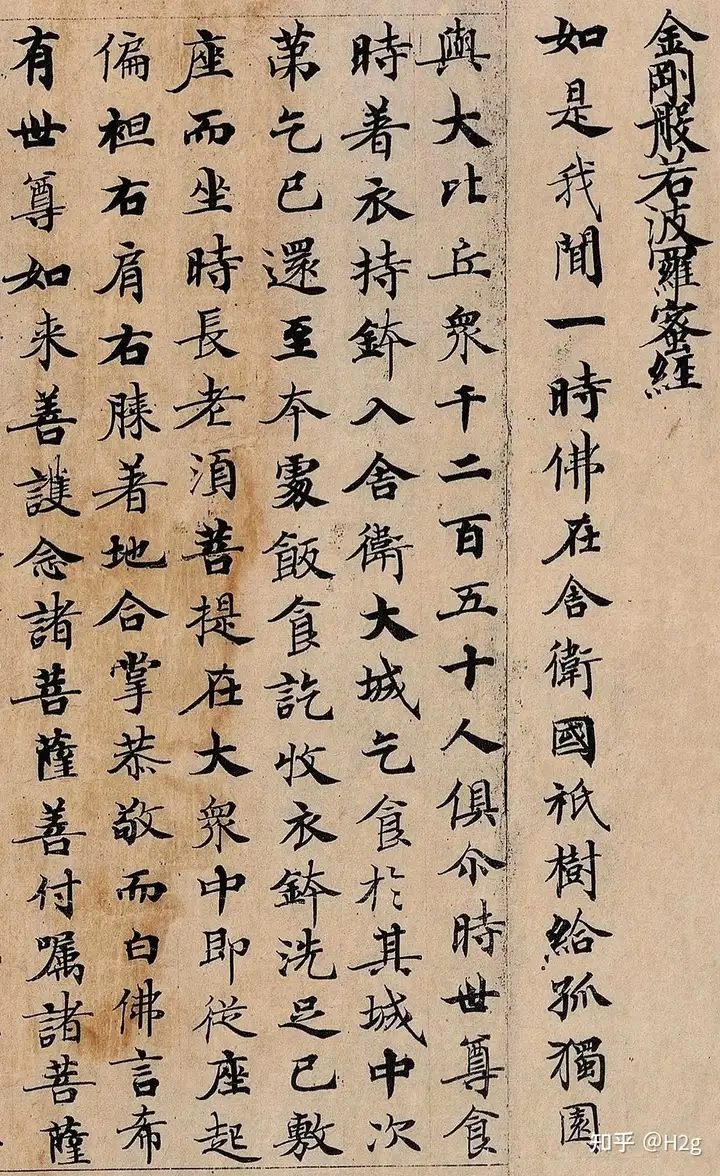 金剛般若波羅蜜經
如是我聞一時佛在舎衛國祇樹給孤獨園
與大比丘衆千二百五十人俱尒時世尊食
時着衣持鉢入舎衛大城乞食於其城中次
苐乞已還至本䖏飯食訖收衣鉢洗足已敷
座而坐時長老湏菩提在大衆中即從座起
偏袒右肩右膝著地合掌恭敬而白佛言希
有世尊如来善護念諸菩薩善付嘱諸菩薩
知乎 @H2g